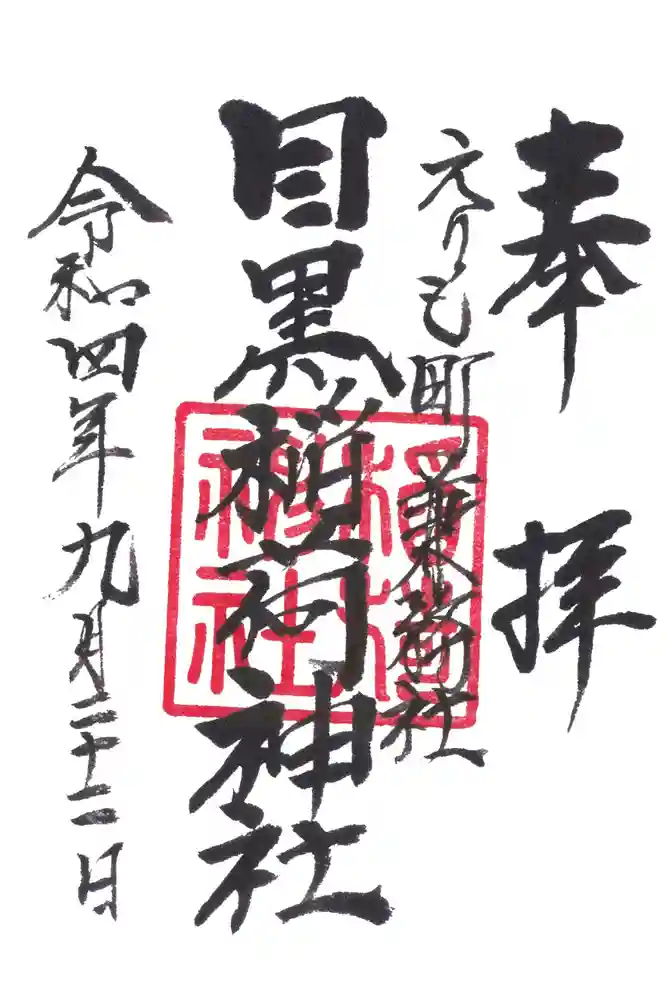 奉拝
えりも町兼務社
目黒稲荷神社
令和四年九月二十二日